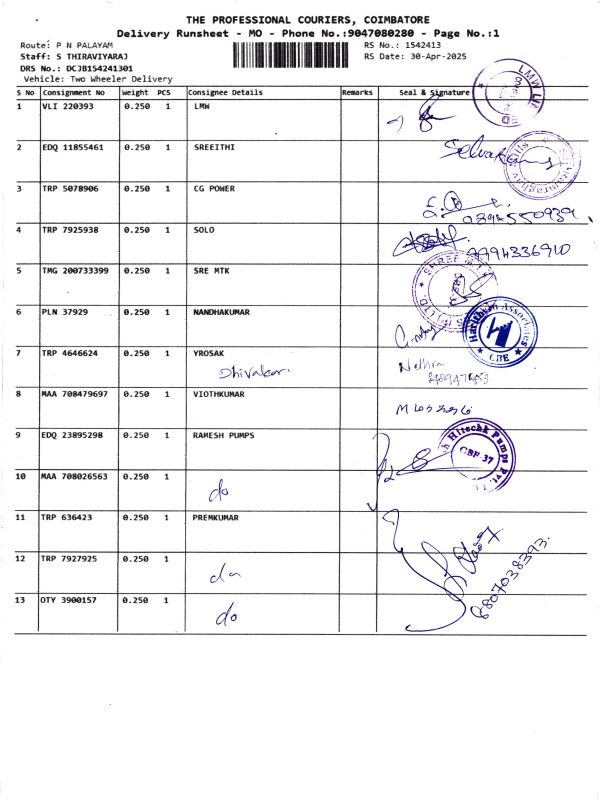 THE PROFESSIONAL COURIERS, COIMBATORE
Delivery Runsheet - MO - Phone No.:9047080280 - Page No.:1
Route: P N PALAYAM
RS No.: 1542413
Staff: S THIRAVIYARAJ
RS Date: 30-Apr-2025
DRS No.: DCJB154241301
Vehicle: Two Wheeler Delivery
S No Consignment No Weight PCS Consignee Details Remarks Seal & Signature
1 VLI 220393 0.250 1 LMW
2 EDQ 11855461 0.250 1 SREEITHI
Selvakumar
3 TRP 5078906 0.250 1 CG POWER
9394550939
4 TRP 7925938 0.250 1 SOLO
9994336910
5 TMG 200733399 0.250 1 SRE MTK
6 PLN 37929 0.250 1 NANDHAKUMAR
Harithbaa Associates
CBE
7 TRP 4646624 0.250 1 YROSAK
Dhivakar
Nethra
8 MAA 708479697 0.250 1 VIOTHKUMAR
9 EDQ 23895298 0.250 1 RAMESH PUMPS
Hitechk Pumps Pvt.
CBE-37
10 MAA 708026563 0.250 1
do
11 TRP 636423 0.250 1 PREMKUMAR
12 TRP 7927925 0.250 1
do
13 OTY 3900157 0.250 1
do
6807038393